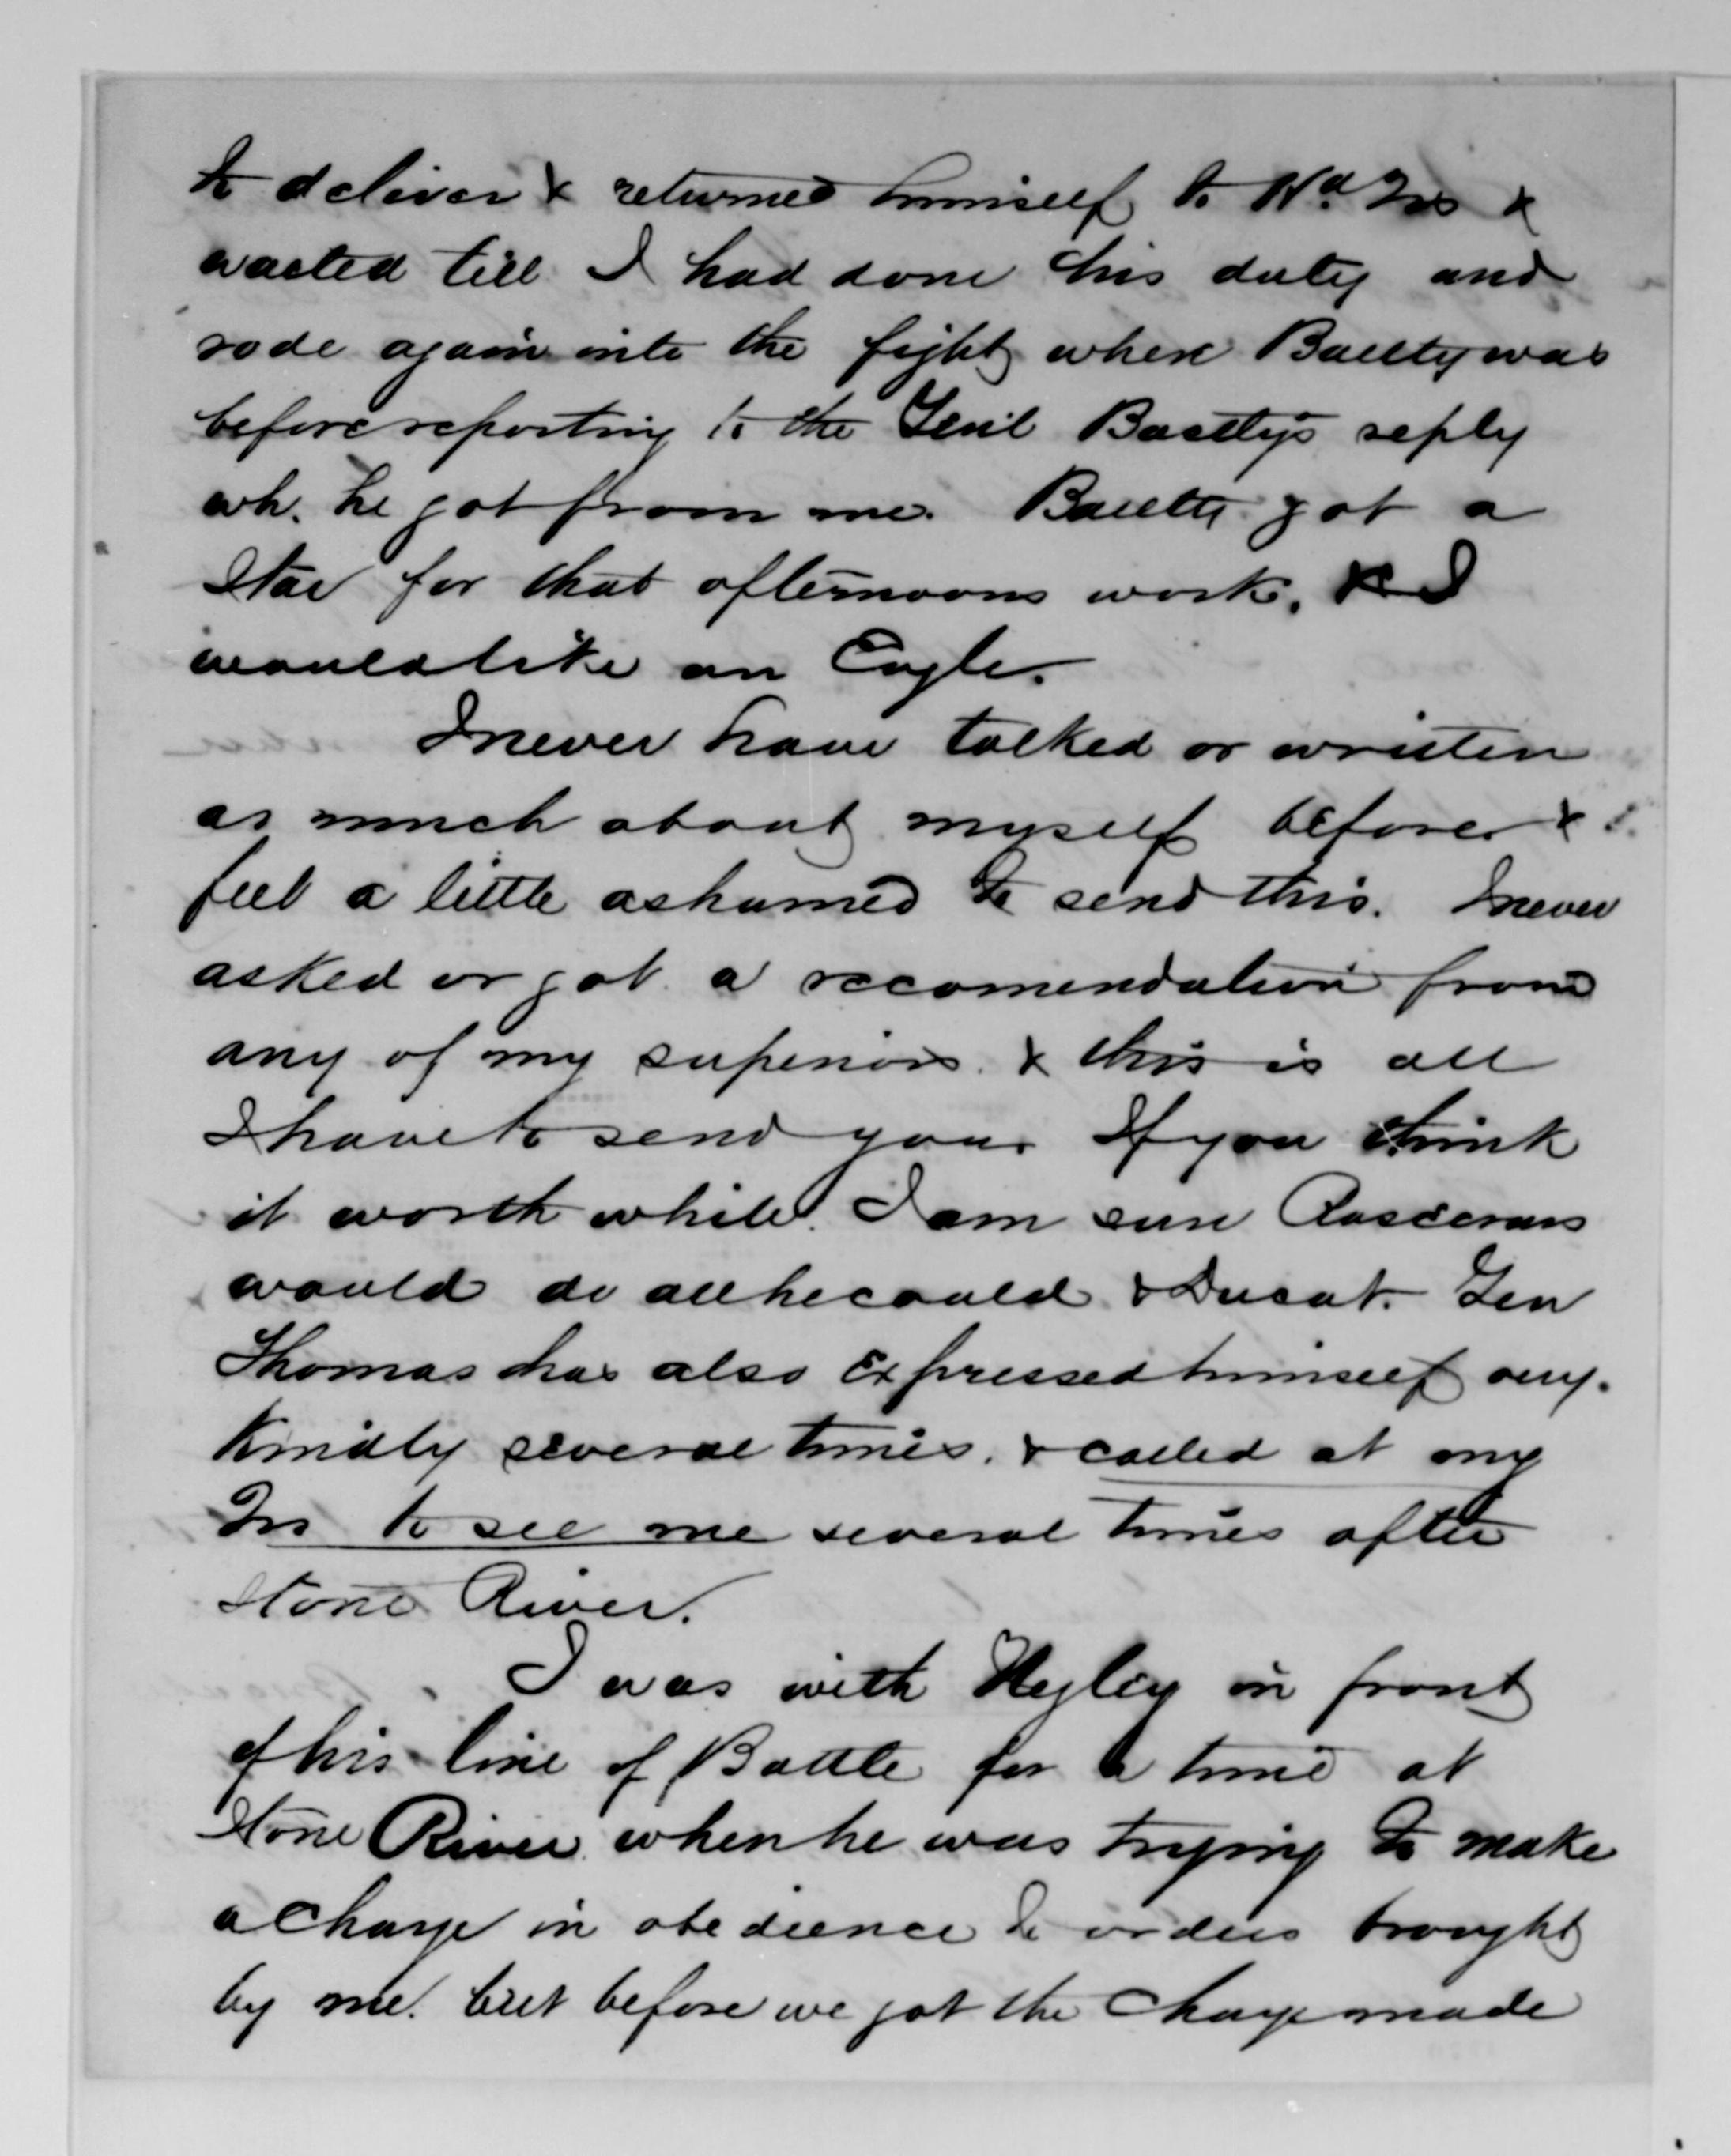 to deliver & returned himself to Hd. Qrs &
waited till I had done his duty and
rode again into the fight where Baetty was
before reporting to the Genl Baettys reply
wh. he got from me. Baetty got a
Star for that afternoons work. & I
would like an Eagle.
I never have talked or written
as much about myself before &
feel a little ashamed to send this. I never
asked or got a recomendation from
any of my superiors. & this is all
I have to send you. If you think
it worth while. I am sure Roscecrans
would do all he could & Ducat. Gen
Thomas has also expressed himself very.
Kindly several times. & called at my
Qrs to see me several times after
Stone River.
I was with Negley in front
of his line of Battle for a time at
Stone River when he was trying to make
a charge in obedience to orders brought
by me. but before we got the charge made